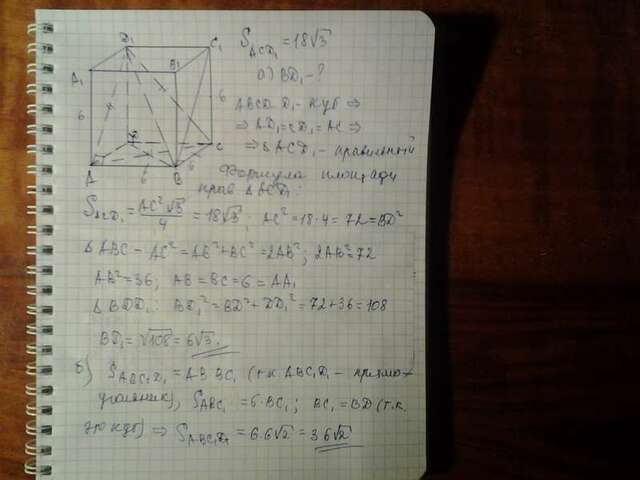 D₁
C₁
A₁
B₁
6
6
D
C
A
6
B
6
S_ACD₁ = 18√3
а) BD₁ - ?
ABCD..D₁ - куб ⇒
⇒ AD₁ = CD₁ = AC ⇒
⇒ ΔACD₁ - правильный
Формула площади
прав ΔACD₁:
S_ACD₁ = AC²√3/4 = 18√3; AC² = 18·4 = 72 = BD²
ΔABC - AC² = AB² + BC² = 2AB²; 2AB² = 72
AB² = 36; AB = BC = 6 = AA₁
ΔBDD₁: BD₁² = BD² + DD₁² = 72 + 36 = 108
BD₁ = √108 = 6√3.
б) S_ABC₁D₁ = AB·BC₁ (т.к. ABC₁D₁ - прямо-
угольник), S_ABC₁ = 6·BC₁; BC₁ = BD (т.к.
это куб) ⇒ S_ABC₁D₁ = 6·6√2 = 36√2